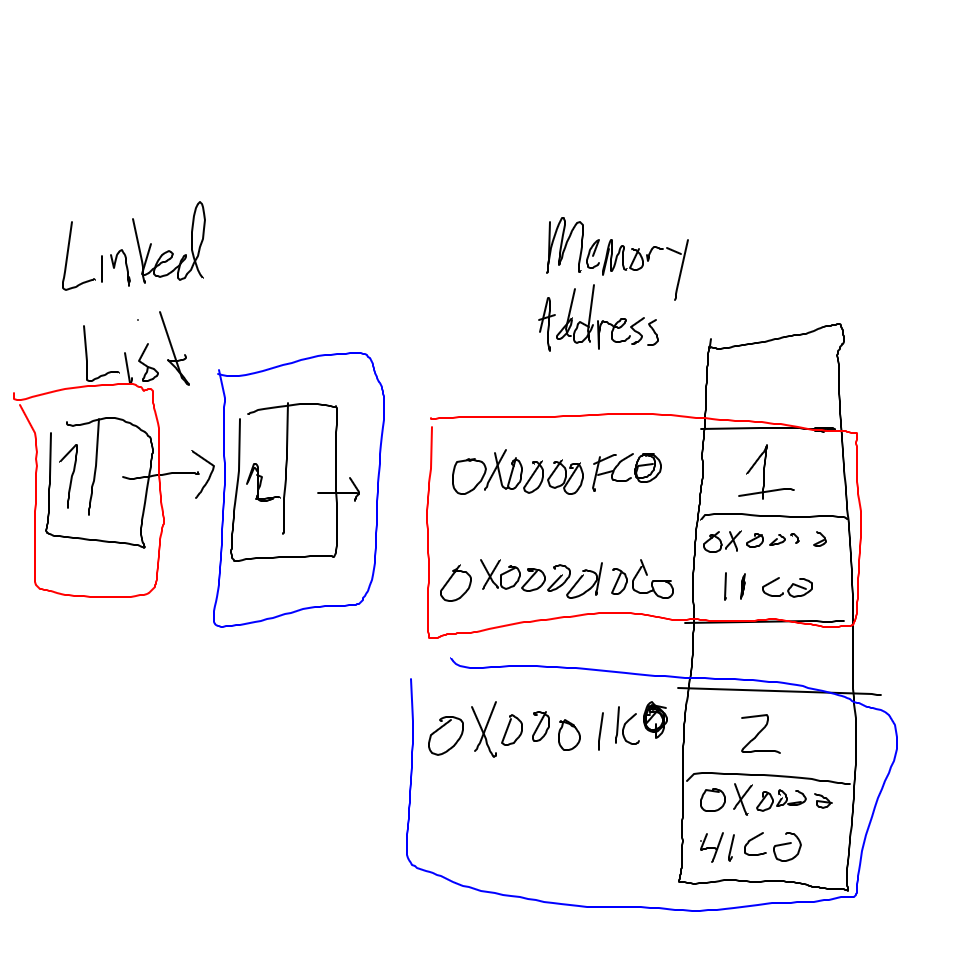 Linked
List
1
2
Memory
Address
0X0000FC0
1
0X000010C0
0X0000
11C0
0X00011C0
2
0X0000
41C0